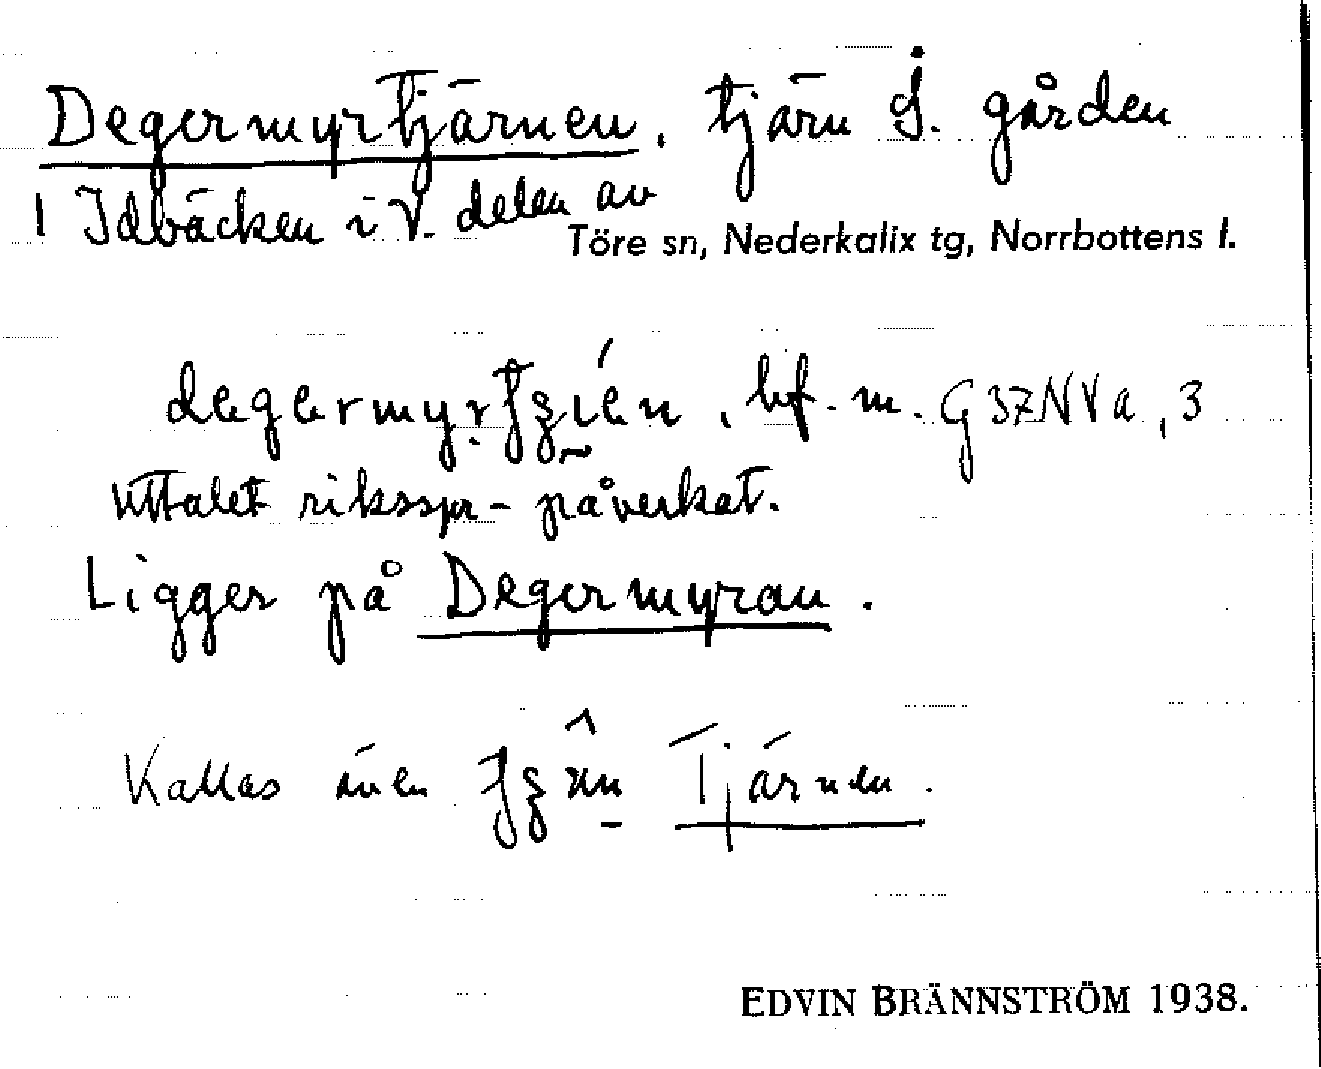 Degermyrtjärnen, tjärn S. gården
1 Idbäcken i V. delen av
Töre sn, Nederkalix tg, Norrbottens l.
bf. m. G 37NVa, 3
uttalet riksspr-påverkat.
Ligger på Degermyran.
Kallas även Tjärnen.
EDVIN BRÄNNSTRÖM 1938.